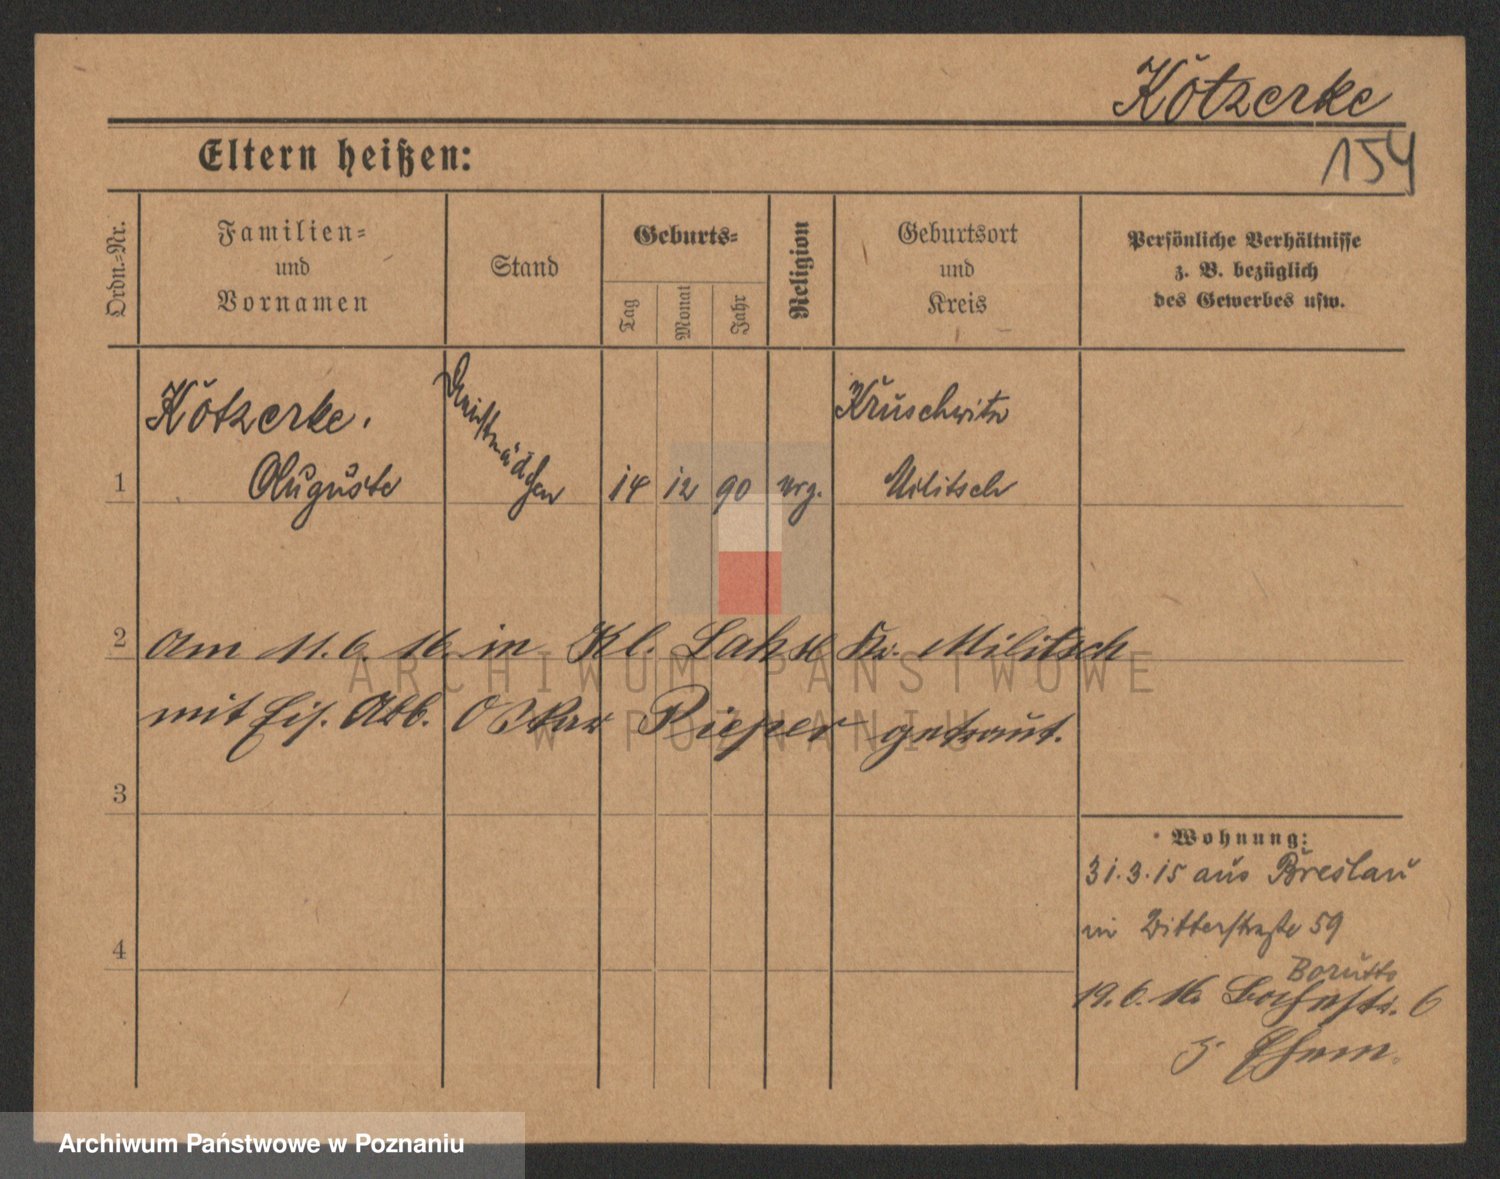 Kötzerke
154
Eltern heißen:
Ordn.-Nr.
Familien-
und
Vornamen
Stand
Geburts-
Tag
Monat
Jahr
Religion
Geburtsort
und
Kreis
Persönliche Verhältnisse
z. B. bezüglich
des Gewerbes usw.
Kötzerke.
Auguste
Dienstmädchen
1
14 12 90
Kruschwitz
Militsch
2
am 11. 6. 16. in Kl. Kr. Militsch
mit Eis. Oskar Pieper getraut.
3
Wohnung:
31.3.15 aus Breslau
in Ritterstraße 59
4
19. 6. 16. 6
z. Ehem.
ARCHIWUM PAŃSTWOWE
W POZNANIU
Archiwum Państwowe w Poznaniu